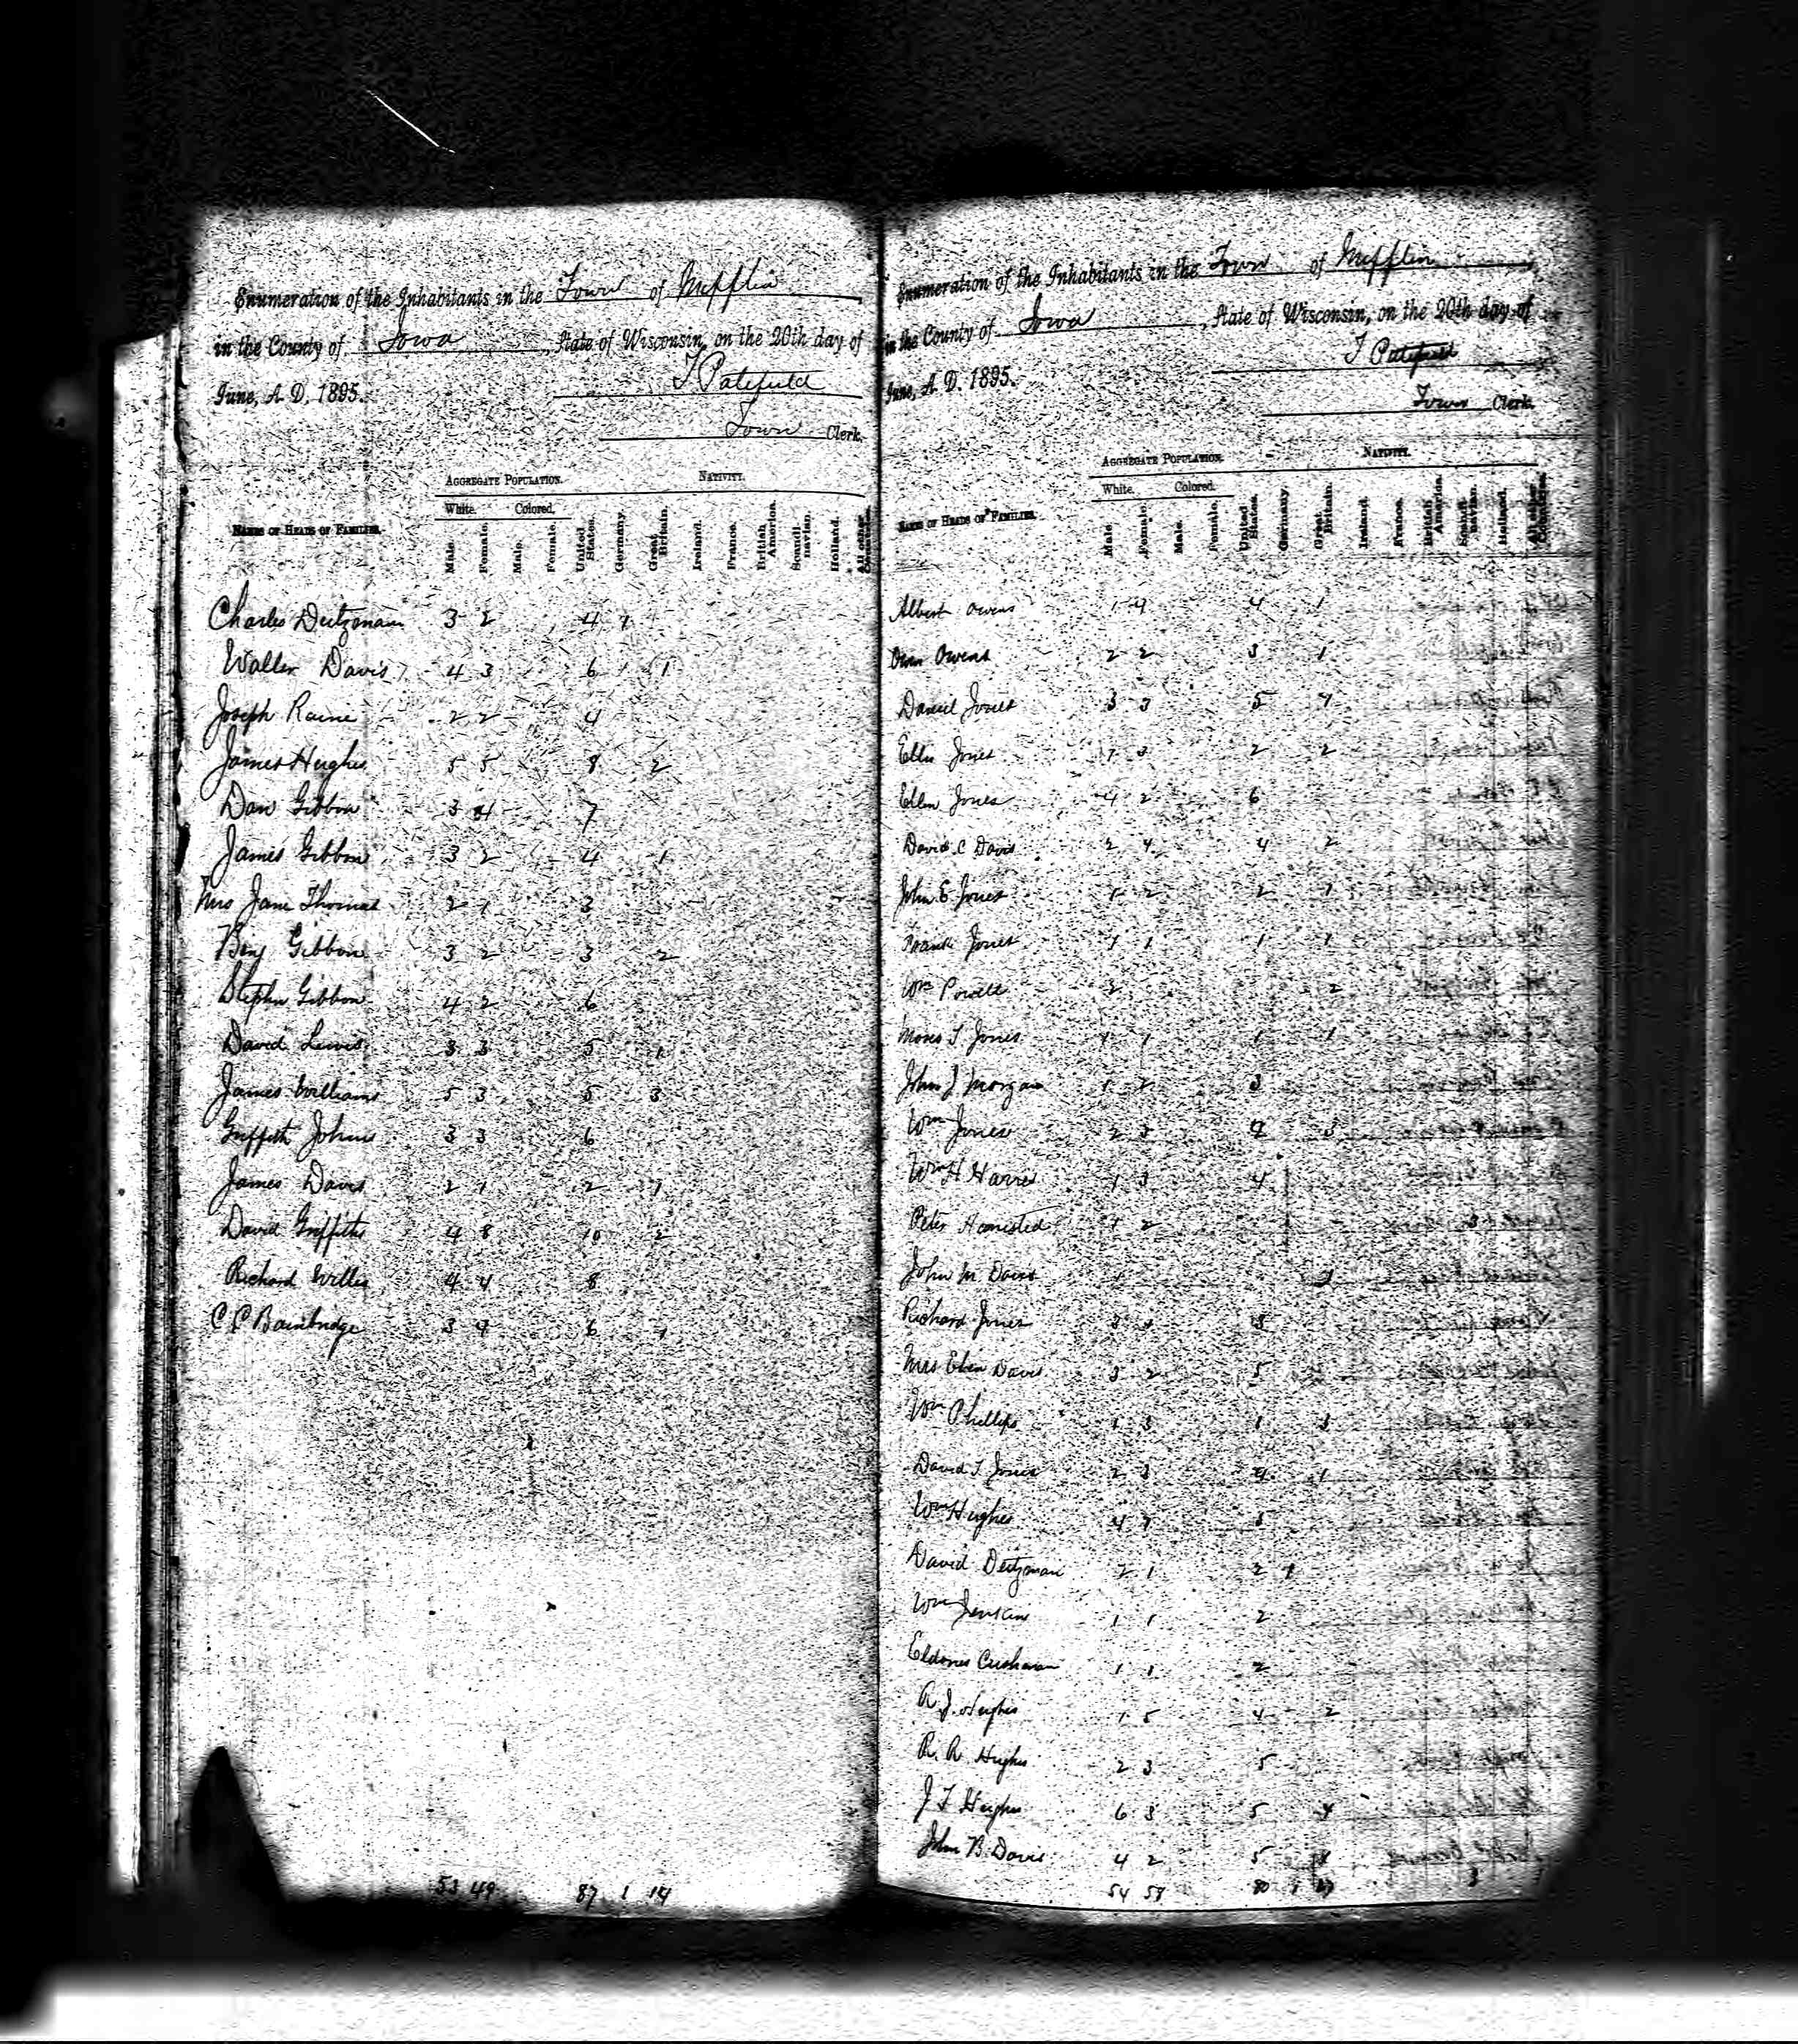 Enumeration of the Inhabitants in the Town of Mifflin
in the County of Iowa, State of Wisconsin, on the 20th day of
June, A. D. 1895.
T Patefield
Town Clerk.
AGGREGATE POPULATION. NATIVITY.
White. Colored.
NAMES OF HEADS OF FAMILIES. Male. Female. Male. Female. United States. Germany. Great Britain. Ireland. France. British America. Scandinavian. Holland. All other Countries.
Charles Deitzman 3 2 4 1
Walter Davis 4 3 6 1
Joseph Raine 2 2 4
James Hughes 5 5 8 2
Dan Gibbon 3 4 7
James Gibbon 3 2 4 1
Mrs Jane Thomas 2 1 3
Benj Gibbon 3 2 3 2
Stephen Gibbon 4 2 6
David Lewis 3 3 5 1
James Williams 5 3 5 3
Griffith Johns 3 3 6
James Davis 2 1 2 1
David Griffiths 4 8 10 2
Richard Willis 4 4 8
C C Bainbridge 3 4 6 1
53 49 87 1 14
Enumeration of the Inhabitants in the Town of Mifflin
in the County of Iowa, State of Wisconsin, on the 20th day of
June, A. D. 1895.
T Patefield
Town Clerk.
AGGREGATE POPULATION. NATIVITY.
White. Colored.
NAMES OF HEADS OF FAMILIES. Male. Female. Male. Female. United States. Germany. Great Britain. Ireland. France. British America. Scandinavian. Holland. All other Countries.
Albert Owens 1 4 4 1
Owen Owens 2 2 3 1
Daniel Jones 3 3 5 1
Ellis Jones 1 3 2 2
Ellen Jones 4 2 6
David C Davis 2 4 4 2
John E Jones 1 2 2 1
Frank Jones 1 1 1 1
Wm Powell 2 2
Moses T Jones 1 1 1 1
John J Morgan 1 2 3
Wm Jones 2 5 4 3
Wm H Harris 1 3 4
Peter 1 2 3
John M Davis 1 1
Richard Jones 3
Mrs Davis 3 2 5
Wm Phillips 1 3 1 3
David T Jones 2 3 4 1
Wm Hughes 4
David Deitzman 2 1 2 1
Wm Jenkins 1 1 2
Cushman 1 1 2
A J Hughes 1 5 4 2
R. R. Hughes 2 3 5
J T Hughes 6 3 5 4
John B. Davis 4 2 5
54 58 80 1 3